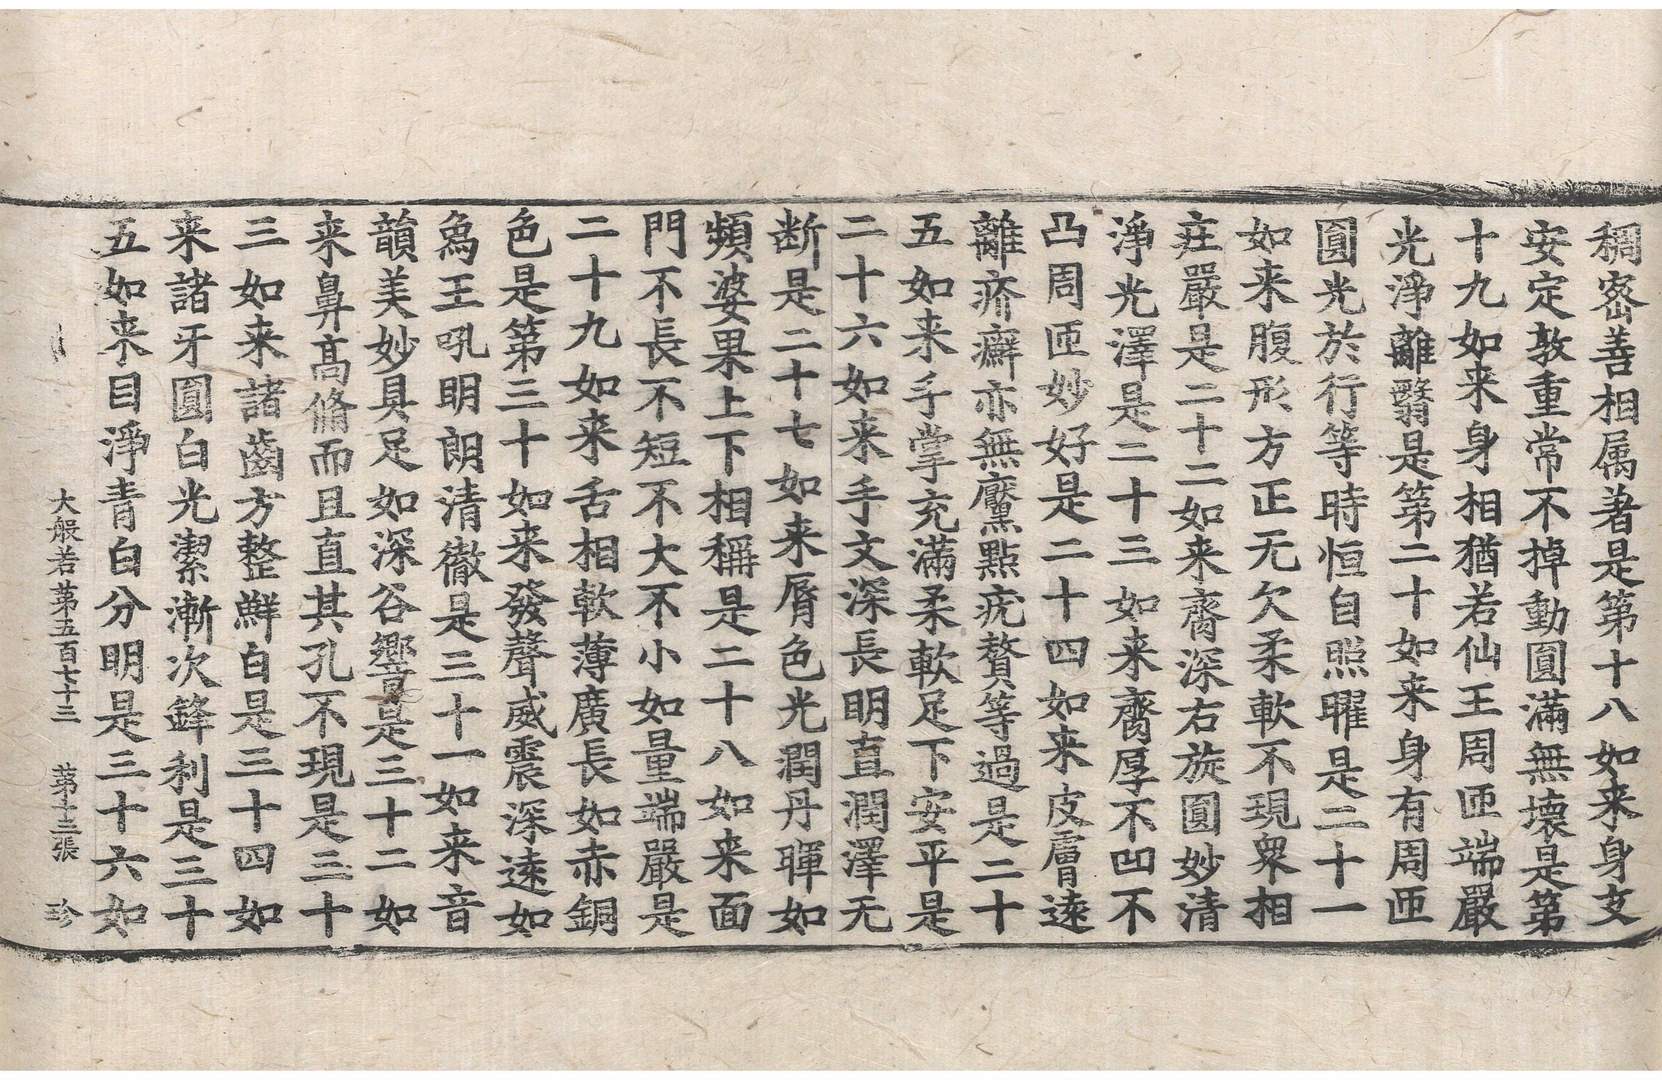 稠密善相属著是第十八如来身支
安定敦重常不掉動圓滿無壞是第
十九如来身相猶若仙王周匝端嚴
光淨離翳是第二十如来身有周匝
圓光於行等時恒自照曜是二十一
如来腹形方正无欠柔軟不現衆相
莊嚴是二十二如来齊深右旋圓妙清
淨光澤是二十三如来齊厚不凹不
凸周匝妙好是二十四如来皮膚遠
離疥癬亦無黶點疣贅等過是二十
五如来手掌充滿柔軟足下安平是
二十六如来手文深長明直潤澤无
断是二十七如来脣色光潤丹暉如
頻婆果上下相稱是二十八如来面
門不長不短不大不小如量端嚴是
二十九如来舌相軟薄廣長如赤銅
色是第三十如来發聲威震深遠如
象王吼明朗清徹是三十一如来音
韻美妙具足如深谷響是三十二如
来鼻高脩而且直其孔不現是三十
三如来諸齒方整鮮白是三十四如
来諸牙圓白光潔漸次鋒利是三十
五如来目淨青白分明是三十六如
大般若第五百七十三 第十三張 珍